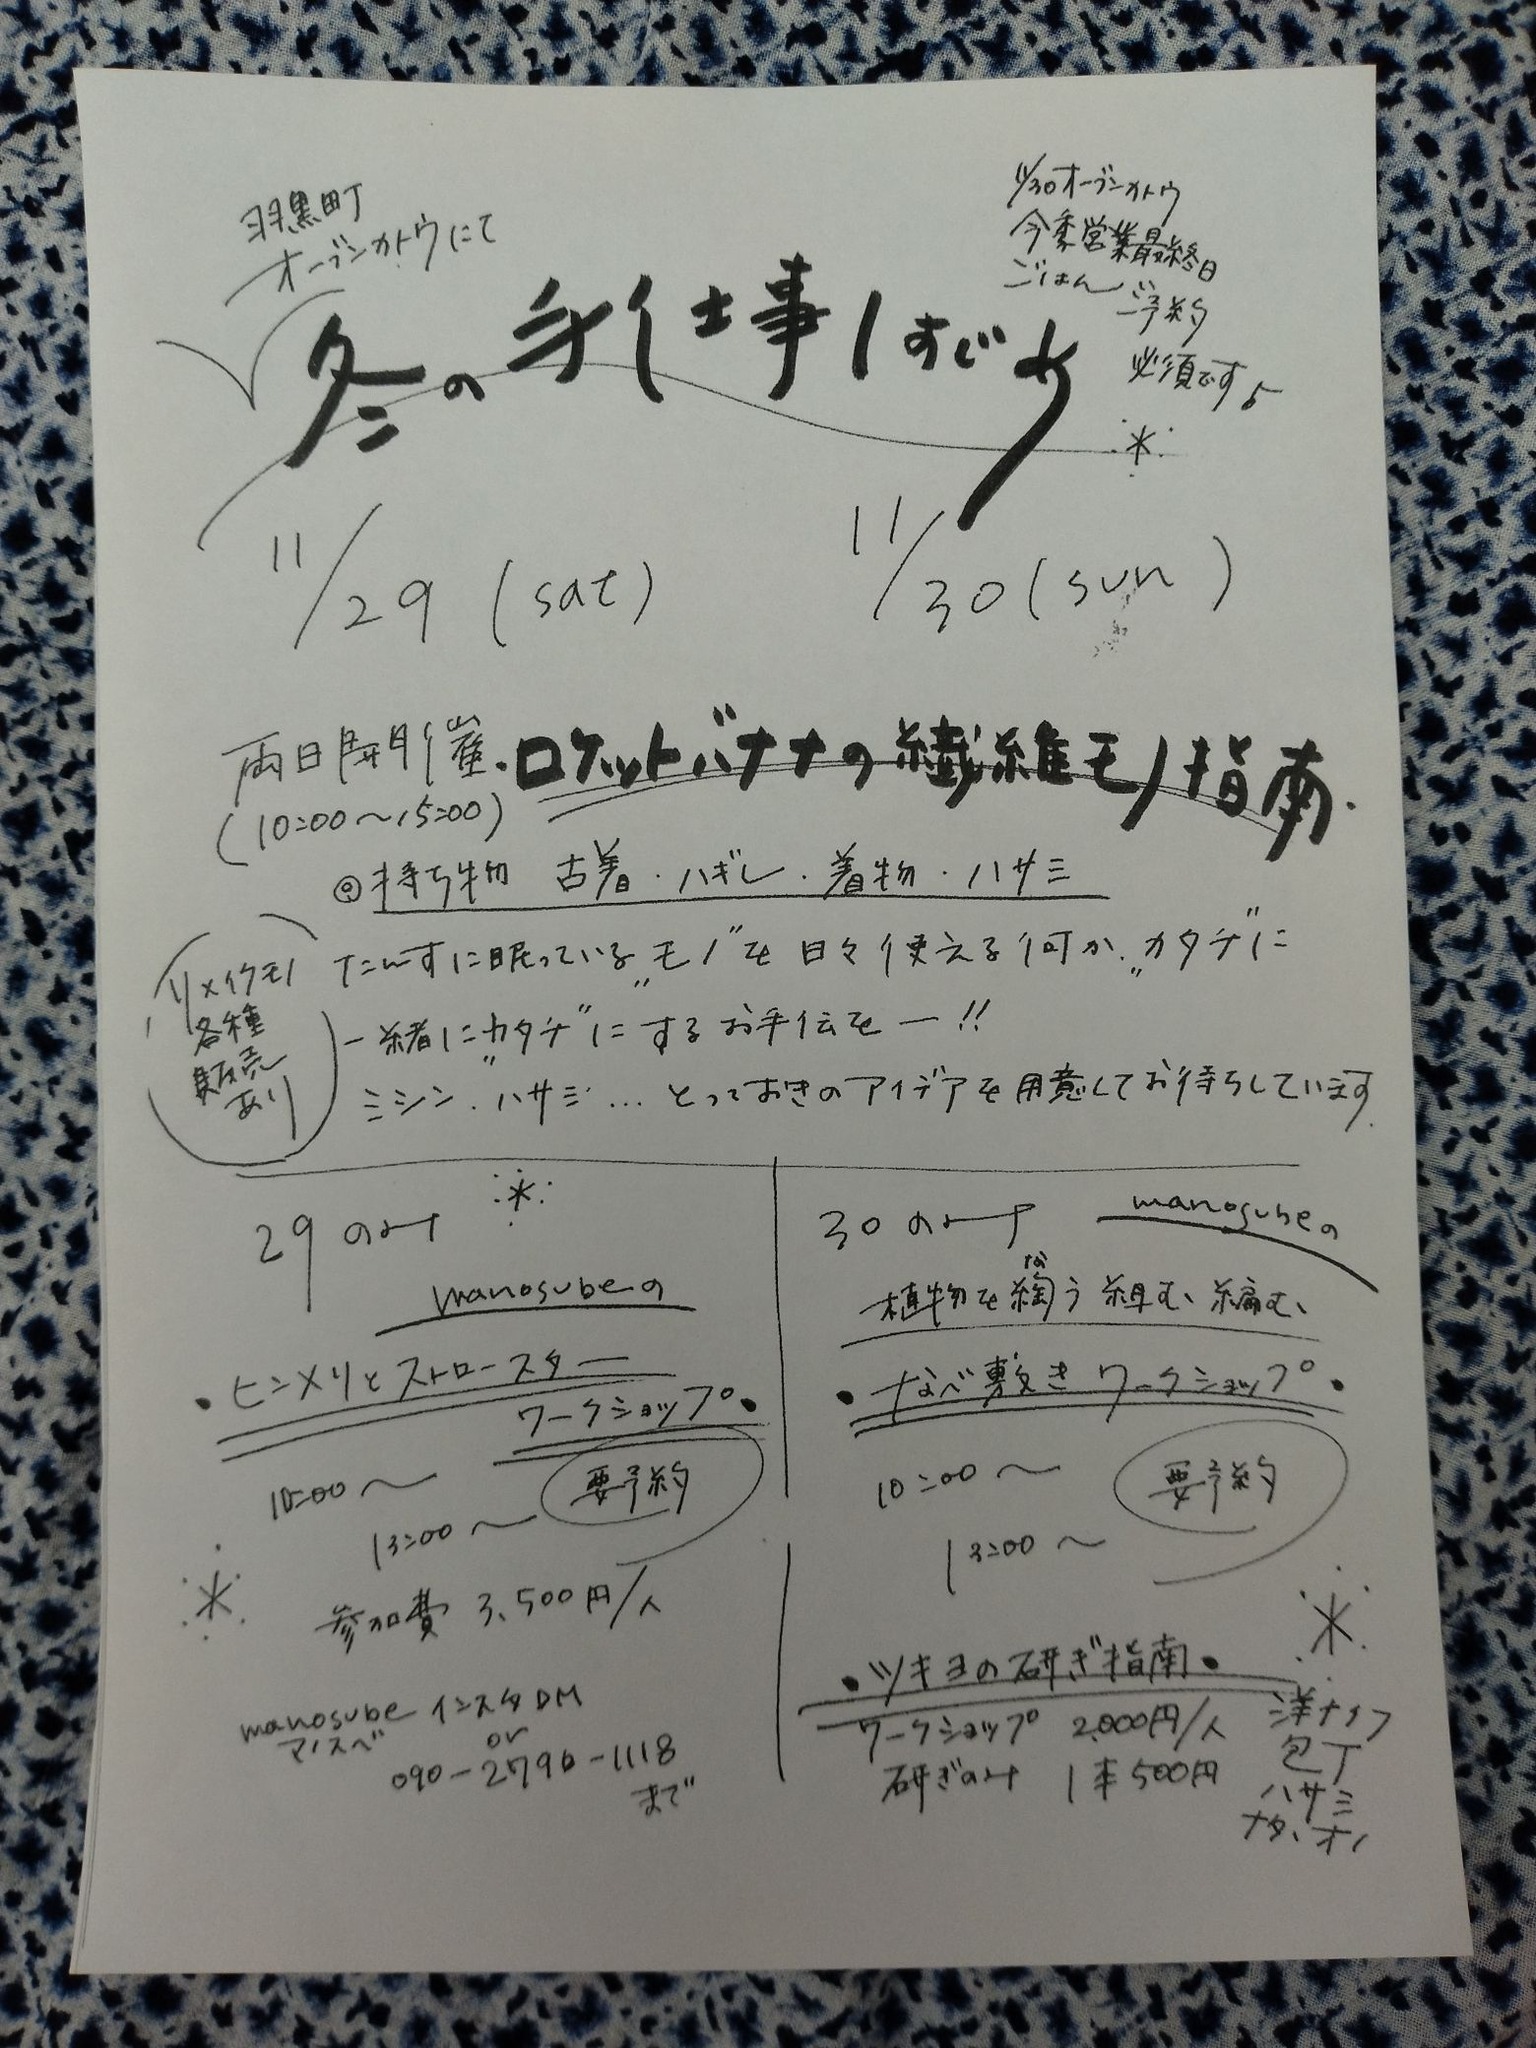 羽黒町
オーブンカトウにて
11/30オーブンカトウ
今季営業最終日
ごはん ご予約
必須です。
冬の手仕事しすじみ
11/29 (sat)
11/30 (sun)
両日開催・ロケットバナナの繊維モノ指南.
(10:00〜15:00)
◎持ち物 古着・ハギレ・着物・ハサミ
リメイクモノ
各種
販売
あり
たんすに眠っている"モノ"を日々使える何か"カタチ"に
一緒に"カタチ"にするお手伝を一!!
ミシン.ハサミ...とっておきのアイデアを用意してお待ちしています.
29のみ
manosubeの
・ヒンメリとストロースター
ワークショップ・
10:00〜
13:00〜
要予約
参加費 3,500円/人
manosube インスタDM
マノスベ
or
090-2790-1118
まで
30のみ manosubeの
な
植物を綯う 組む、編む、
・なべ敷きワークショップ・
10:00〜
13:00〜
要予約
・ツキヨの研ぎ指南・
ワークショップ 2,000円/人
研ぎのみ 1本500円
洋ナイフ
包丁
ハサミ
ナタ、オノ